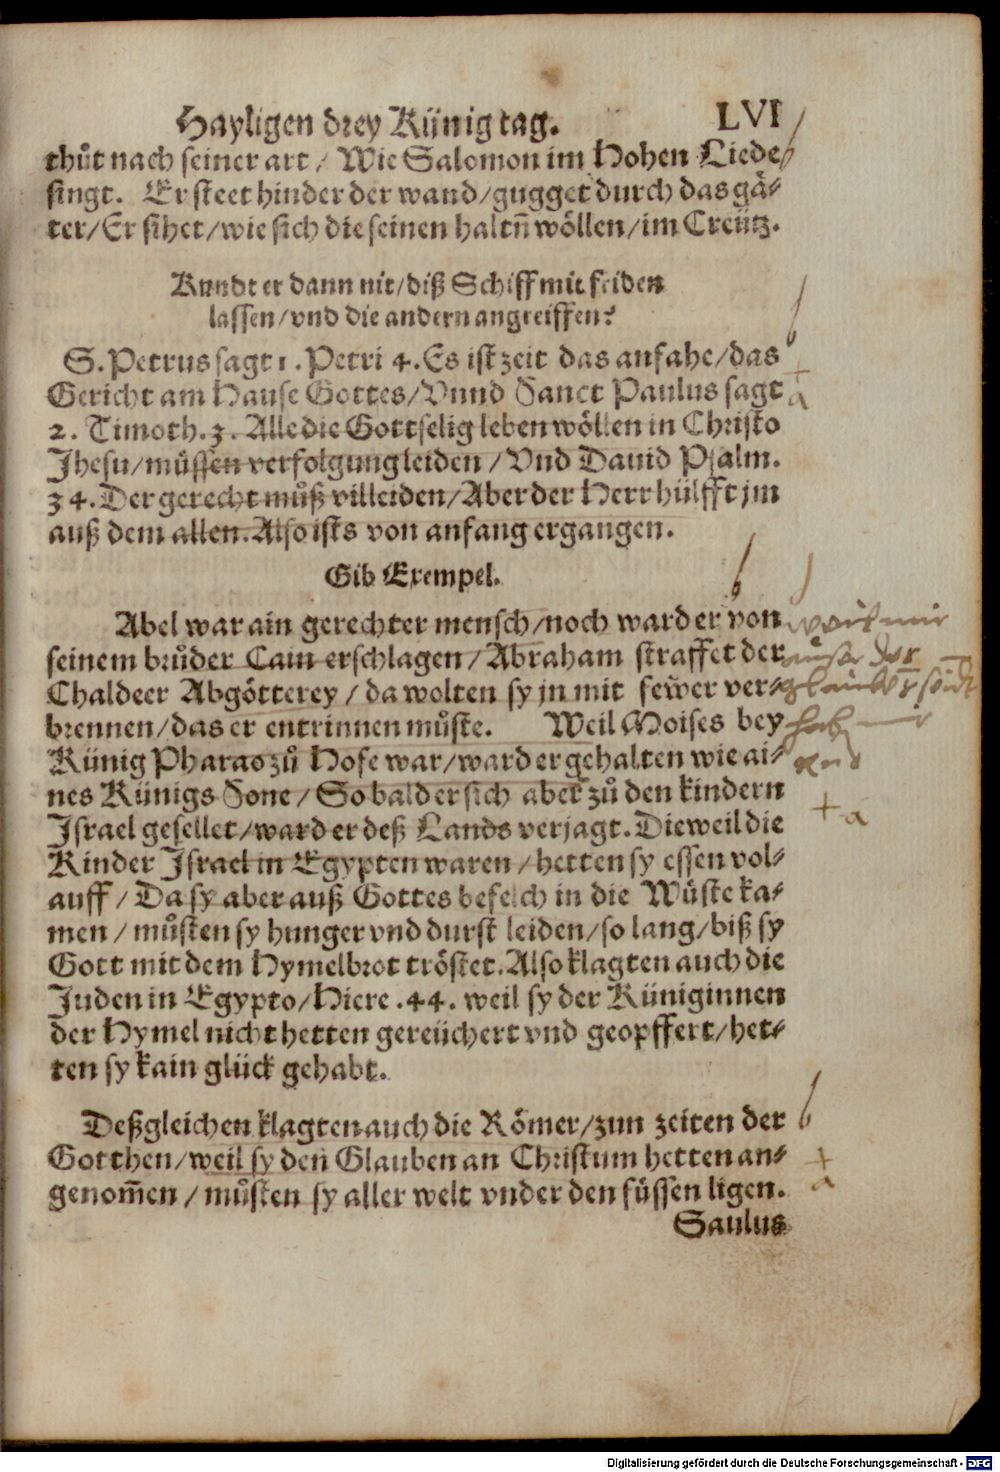 Hayligen drey Künig tag. LVI
thůt nach seiner art / Wie Salomon im Hohen Liede /
singt. Er steet hinder der wand / gugget durch das gä-
ter / Er sihet / wie sich die seinen haltñ wöllen / im Creütz.
Kundt er dann nit / diß Schiff mit friden
lassen / vnd die andern angreiffen?
S. Petrus sagt 1. Petri 4. Es ist zeit das anfahe / das
Gericht am Hause Gottes / Vnnd Sanct Paulus sagt
2. Timoth. 3. Alle die Gottselig leben wöllen in Christo
Jhesu / müssen verfolgung leiden / Vnd Dauid Psalm.
34. Der gerecht můß vil leiden / Aber der Herr hülfft jm
auß dem allen. Also ists von anfang ergangen.
Gib Exempel.
Abel war ain gerechter mensch / noch ward er von
seinem brůder Cain erschlagen / Abraham straffet der
Chaldeer Abgötterey / da wolten sy jn mit fewer ver-
brennen / das er entrinnen můste. Weil Moises bey
Künig Pharao zů Hofe war / ward er gehalten wie ai-
nes Künigs Sone / So bald er sich aber zů den kindern
Jsrael gesellet / ward er deß Lands verjagt. Dieweil die
Kinder Jsrael in Egypten waren / hetten sy essen vol-
auff / Da sy aber auß Gottes befelch in die Wüste ka-
men / můsten sy hunger vnd durst leiden / so lang / biß sy
Gott mit dem Hymelbrot tröstet. Also klagten auch die
Juden in Egypto / Hiere .44. weil sy der Küniginnen
der Hymel nicht hetten gereüchert vnd geopffert / het-
ten sy kain glück gehabt.
Deßgleichen klagten auch die Römer / zun zeiten der
Gotthen / weil sy den Glauben an Christum hetten an-
genom̃en / můsten sy aller welt vnder den füssen ligen.
Saulus
Digitalisierung gefördert durch die Deutsche Forschungsgemeinschaft - DFG